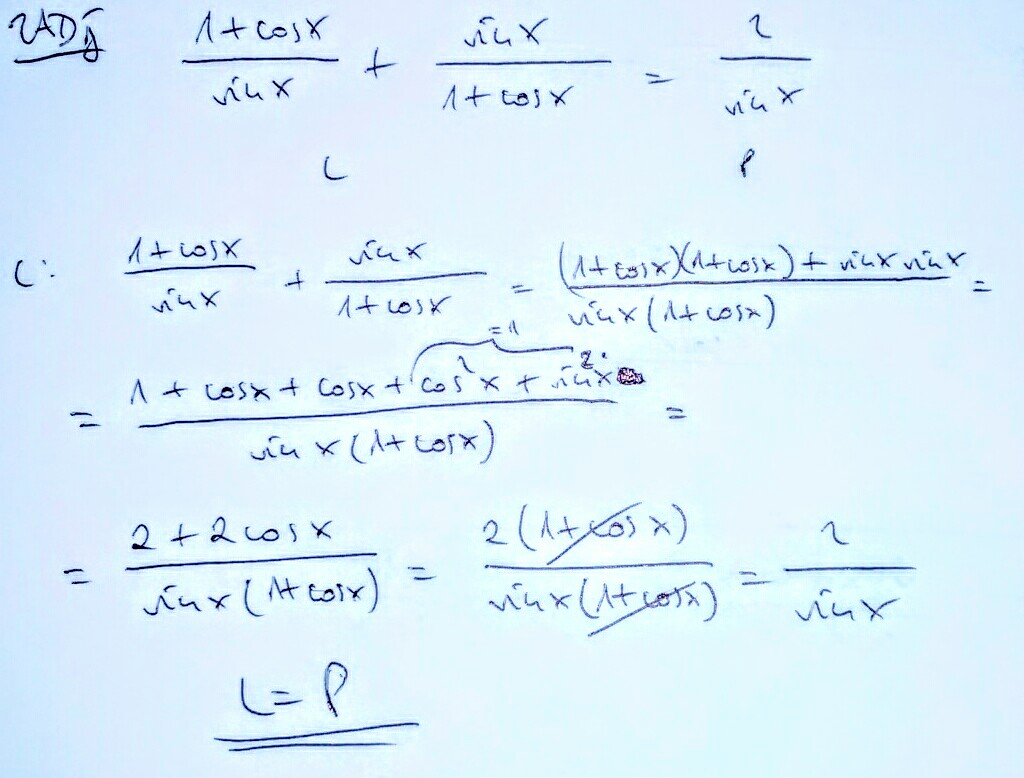 ZADj (1+cosx)/(sinx) + (sinx)/(1+cosx) = 2/(sinx)
L P
L: (1+cosx)/(sinx) + (sinx)/(1+cosx) = ((1+cosx)(1+cosx) + sinx sinx)/(sinx(1+cosx)) =
=1
= (1 + cosx + cosx + cos²x + sin²x)/(sinx(1+cosx)) =
= (2+2cosx)/(sinx(1+cosx)) = (2(1+cosx))/(sinx(1+cosx)) = 2/(sinx)
L=P